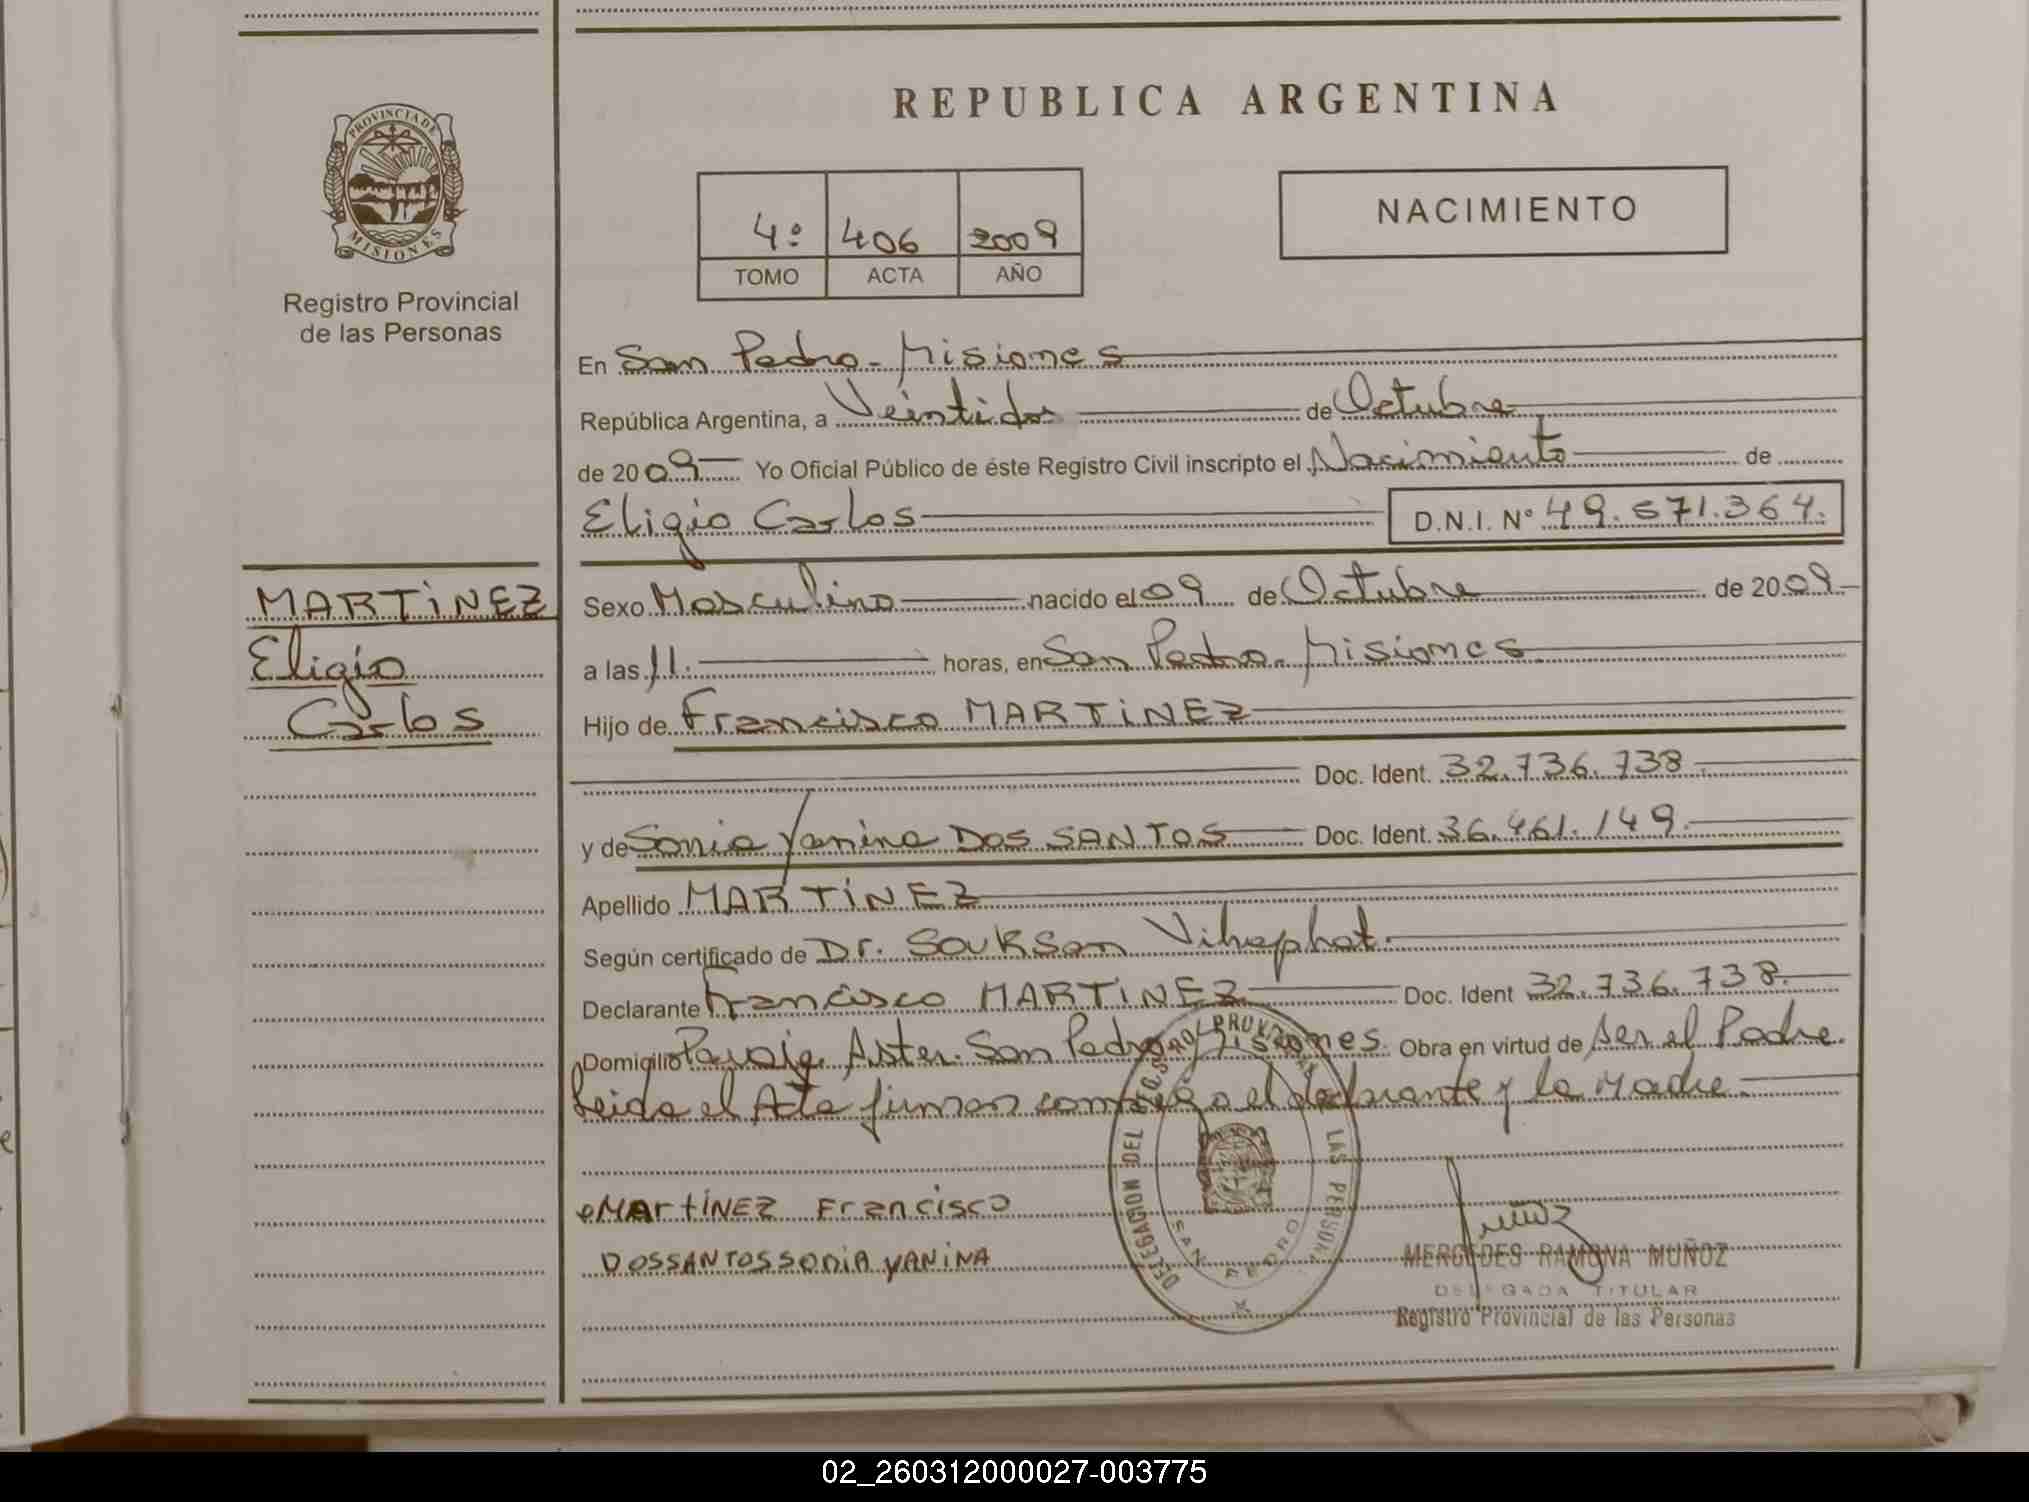 REPUBLICA ARGENTINA
PROVINCIA DE
MISIONES
Registro Provincial
de las Personas
4º 406 2009
TOMO ACTA AÑO
NACIMIENTO
En San Pedro - Misiones
República Argentina, a Veintidos de Octubre
de 2009 Yo Oficial Público de éste Registro Civil inscripto el Nacimiento de
Eligio Carlos D.N.I. Nº 49.571.364.
MARTINEZ
Eligio
Carlos
Sexo Masculino nacido el 09 de Octubre de 2009
a las 11. horas, en San Pedro - Misiones
Hijo de Francisco MARTINEZ
Doc. Ident. 32.736.738
y de Sonia Yanina DOS SANTOS Doc. Ident. 36.461.149.
Apellido MARTINEZ
Según certificado de Dr. Souksan Vihaphat.
Declarante Francisco MARTINEZ Doc. Ident 32.736.738.
Domicilio Paraje Aster. San Pedro Misiones. Obra en virtud de ser el Padre
leida el Acta firman conmigo el declarante y la Madre
MArtiNEZ Francisco
DOSSANTOSSONIA YANINA
DELEGACION DEL REGISTRO PROVINCIAL DE LAS PERSONAS
SAN PEDRO
MERCEDES RAMONA MUÑOZ
DELEGADA TITULAR
Registro Provincial de las Personas
02_260312000027-003775